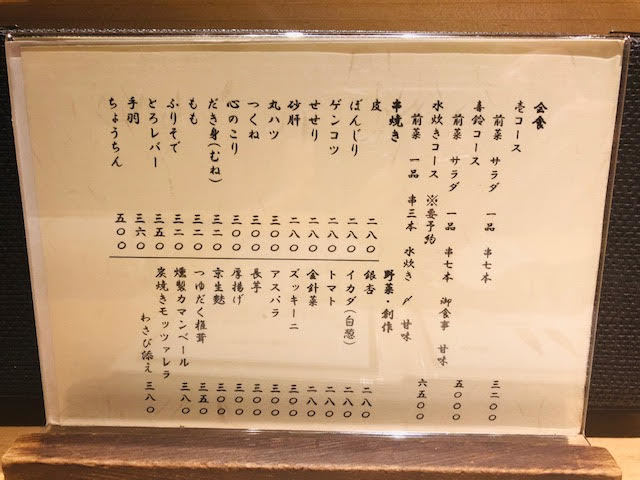 会食
壱コース
前菜 サラダ 一品 串七本 三二〇〇
喜鈴コース
前菜 サラダ 一品 串七本 御食事 甘味 五〇〇〇
水炊きコース ※要予約
前菜 一品 串三本 水炊き 〆 甘味 六五〇〇
串焼き
皮 二八〇
ぼんじり 二八〇
ゲンコツ 二八〇
せせり 二八〇
砂肝 二八〇
丸ハツ 三〇〇
つくね 三〇〇
心のこり 三〇〇
だき身(むね) 三二〇
もも 三二〇
ふりそで 三二〇
とろレバー 三五〇
手羽 三六〇
ちょうちん 五〇〇
野菜・創作
銀杏 二八〇
イカダ(白葱) 二八〇
トマト 二八〇
金針菜 二八〇
ズッキーニ 三〇〇
アスパラ 三〇〇
長芋 三〇〇
厚揚げ 三〇〇
京生麩 三〇〇
つゆだく椎茸 三五〇
燻製カマンベール 三八〇
炭焼きモッツァレラ
わさび添え 三八〇